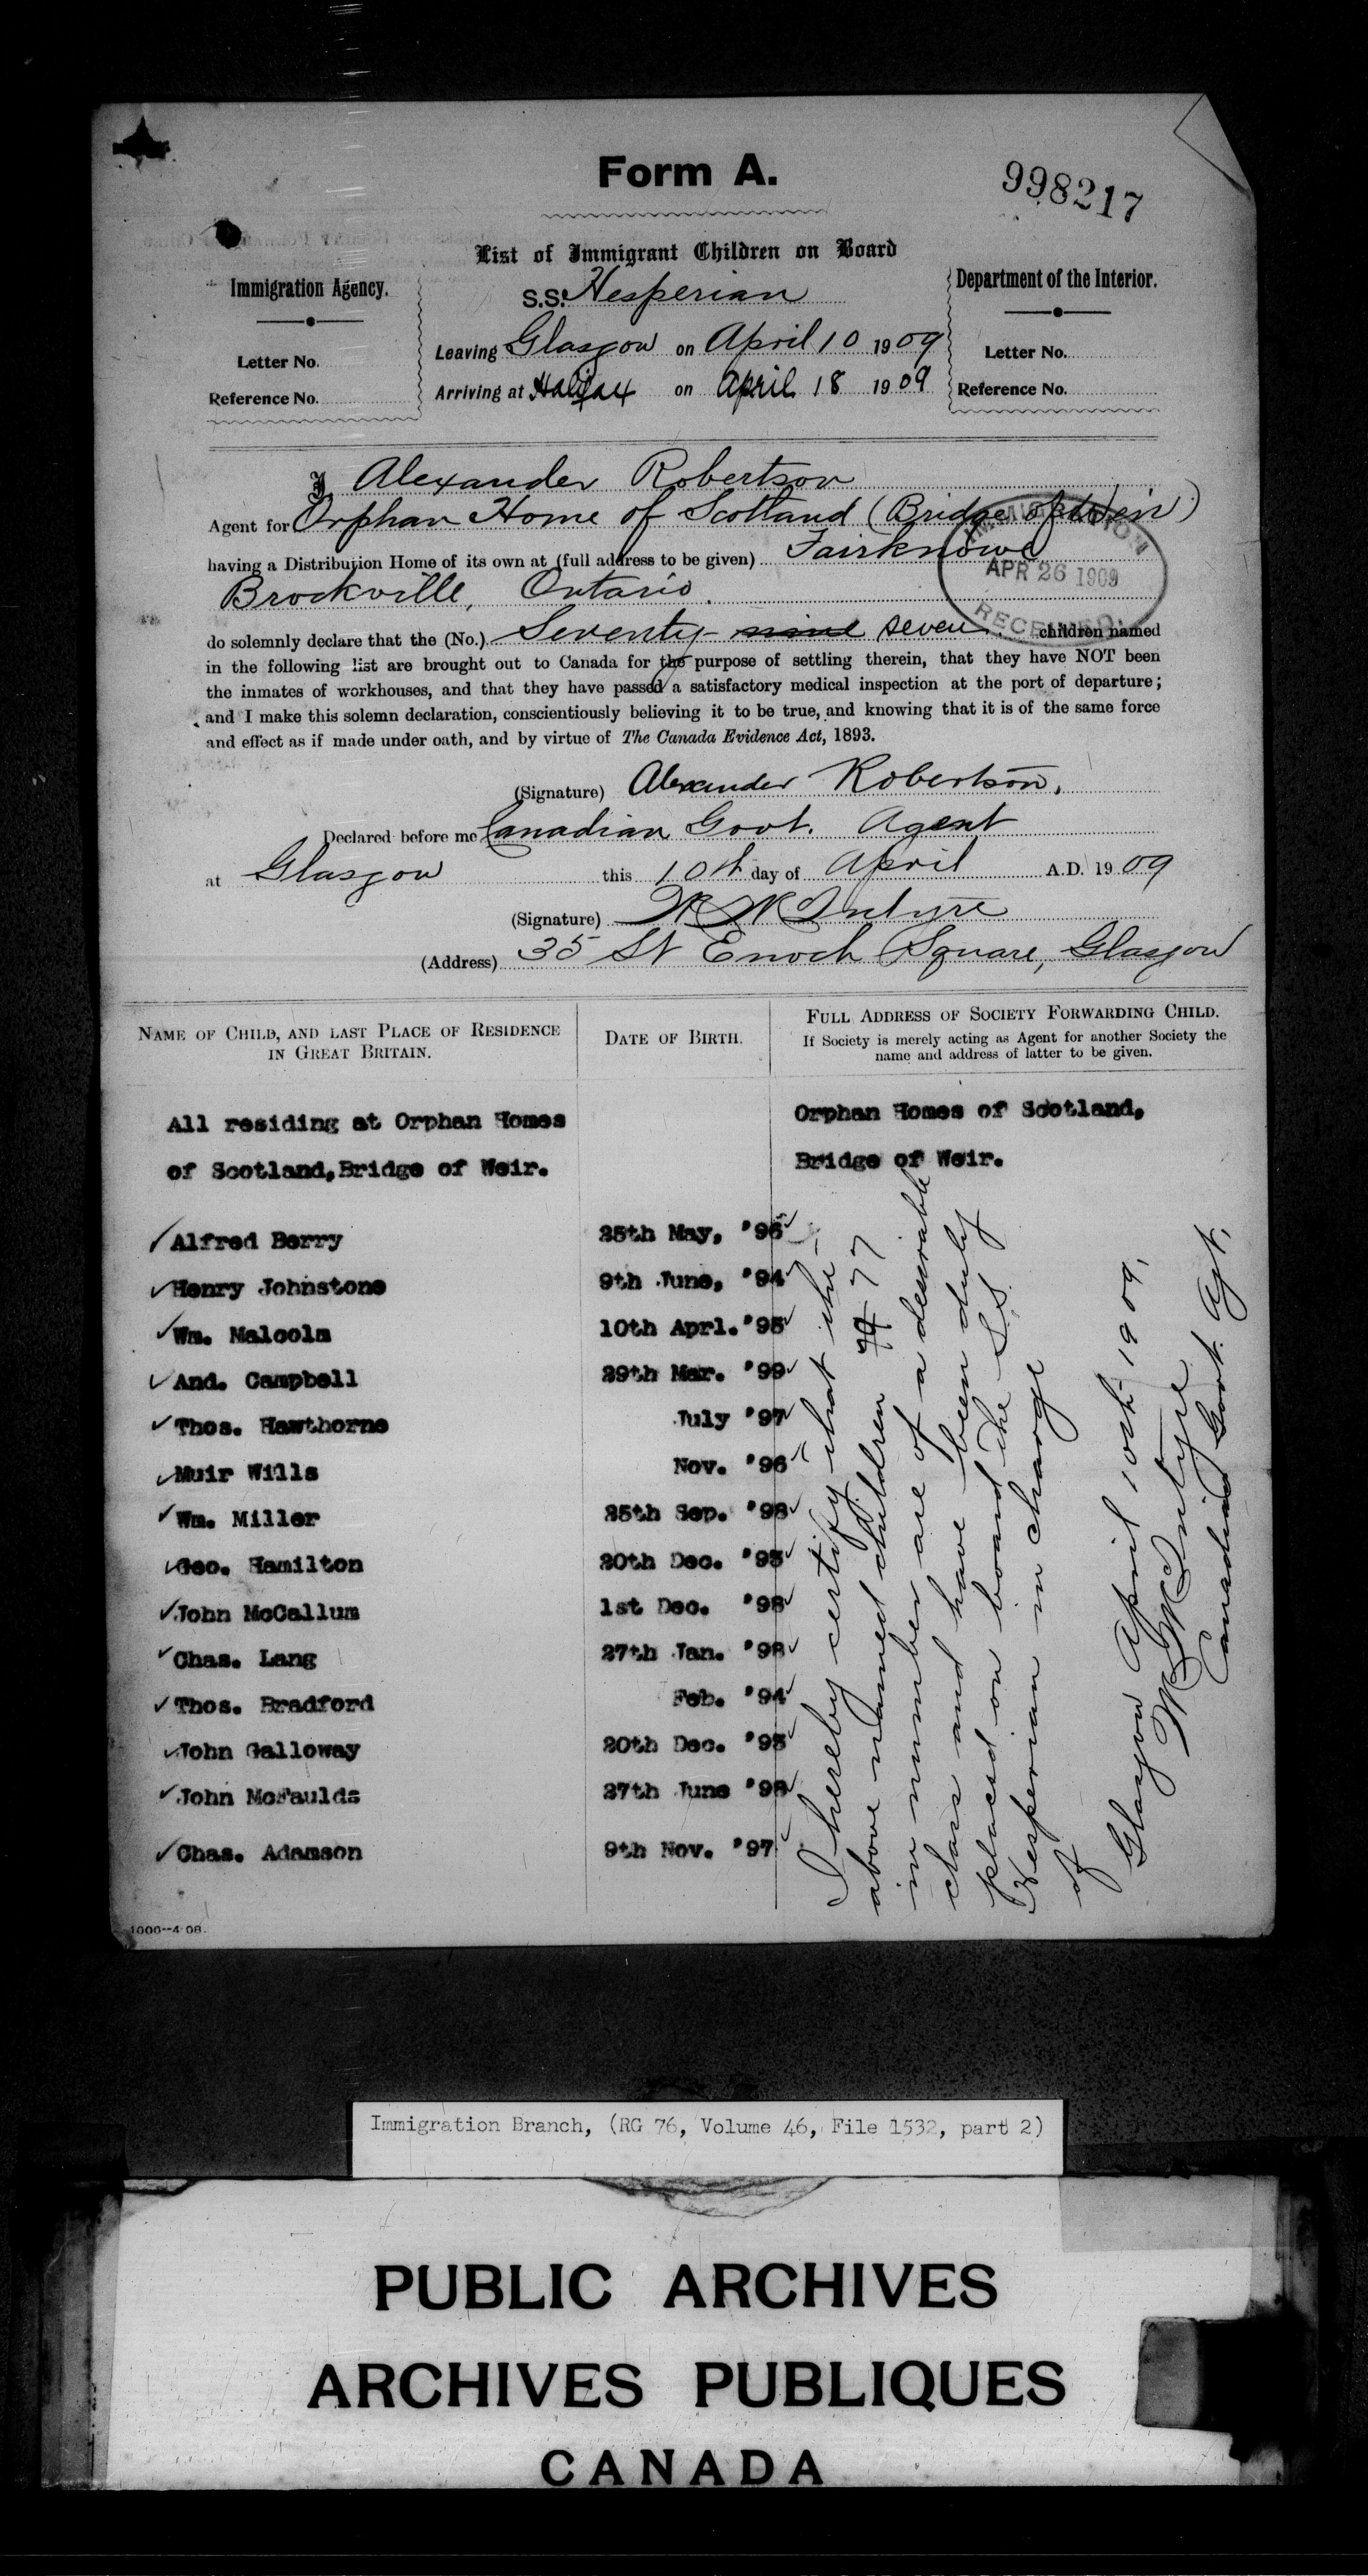 Form A.
998217
List of Immigrant Children on Board
Immigration Agency.
Department of the Interior.
S.S. Hesperian
Leaving Glasgow on April 10 1909
Letter No.
Letter No.
Arriving at Halifax on April 18 1909
Reference No.
Reference No.
I Alexander Robertson
Agent for Orphan Home of Scotland (Bridge of Weir)
having a Distribution Home of its own at (full address to be given) Fairknowe
Brockville, Ontario.
IMMIGRATION
APR 26 1909
RECEIVED
do solemnly declare that the (No.) Seventy- nine seven children named
in the following list are brought out to Canada for the purpose of settling therein, that they have NOT been
the inmates of workhouses, and that they have passed a satisfactory medical inspection at the port of departure;
and I make this solemn declaration, conscientiously believing it to be true, and knowing that it is of the same force
and effect as if made under oath, and by virtue of The Canada Evidence Act, 1893.
(Signature) Alexander Robertson,
Declared before me Canadian Govt. Agent
at Glasgow this 10th day of April A.D. 1909
(Signature) McIntyre
(Address) 35 St Enoch Square, Glasgow
NAME OF CHILD, AND LAST PLACE OF RESIDENCE
IN GREAT BRITAIN.
DATE OF BIRTH.
FULL ADDRESS OF SOCIETY FORWARDING CHILD.
If Society is merely acting as Agent for another Society the
name and address of latter to be given.
All residing at Orphan Homes
of Scotland,Bridge of Weir.
Orphan Homes of Scotland,
Bridge of Weir.
Alfred Berry 25th May, '96
Henry Johnstone 9th June, '94
Wm. Malcolm 10th Aprl.'95
And. Campbell 29th Mar. '99
Thos. Hawthorne July '97
Muir Wills Nov. '96
Wm. Miller 25th Sep. '98
Geo. Hamilton 20th Dec. '95
John McCallum 1st Dec. '98
Chas. Lang 27th Jan. '98
Thos. Bradford Feb. '94
John Galloway 20th Dec. '95
John McFaulds 27th June '98
Chas. Adamson 9th Nov. '97
I hereby certify that the
above named children 77
in number are of a desirable
class and have been duly
placed on board the S.S.
Hesperian in charge
of
Glasgow April 10th 1909.
McIntyre
Canadian Govt. Agt.
1000--4-08.
Immigration Branch, (RG 76, Volume 46, File 1532, part 2)
PUBLIC ARCHIVES
ARCHIVES PUBLIQUES
CANADA